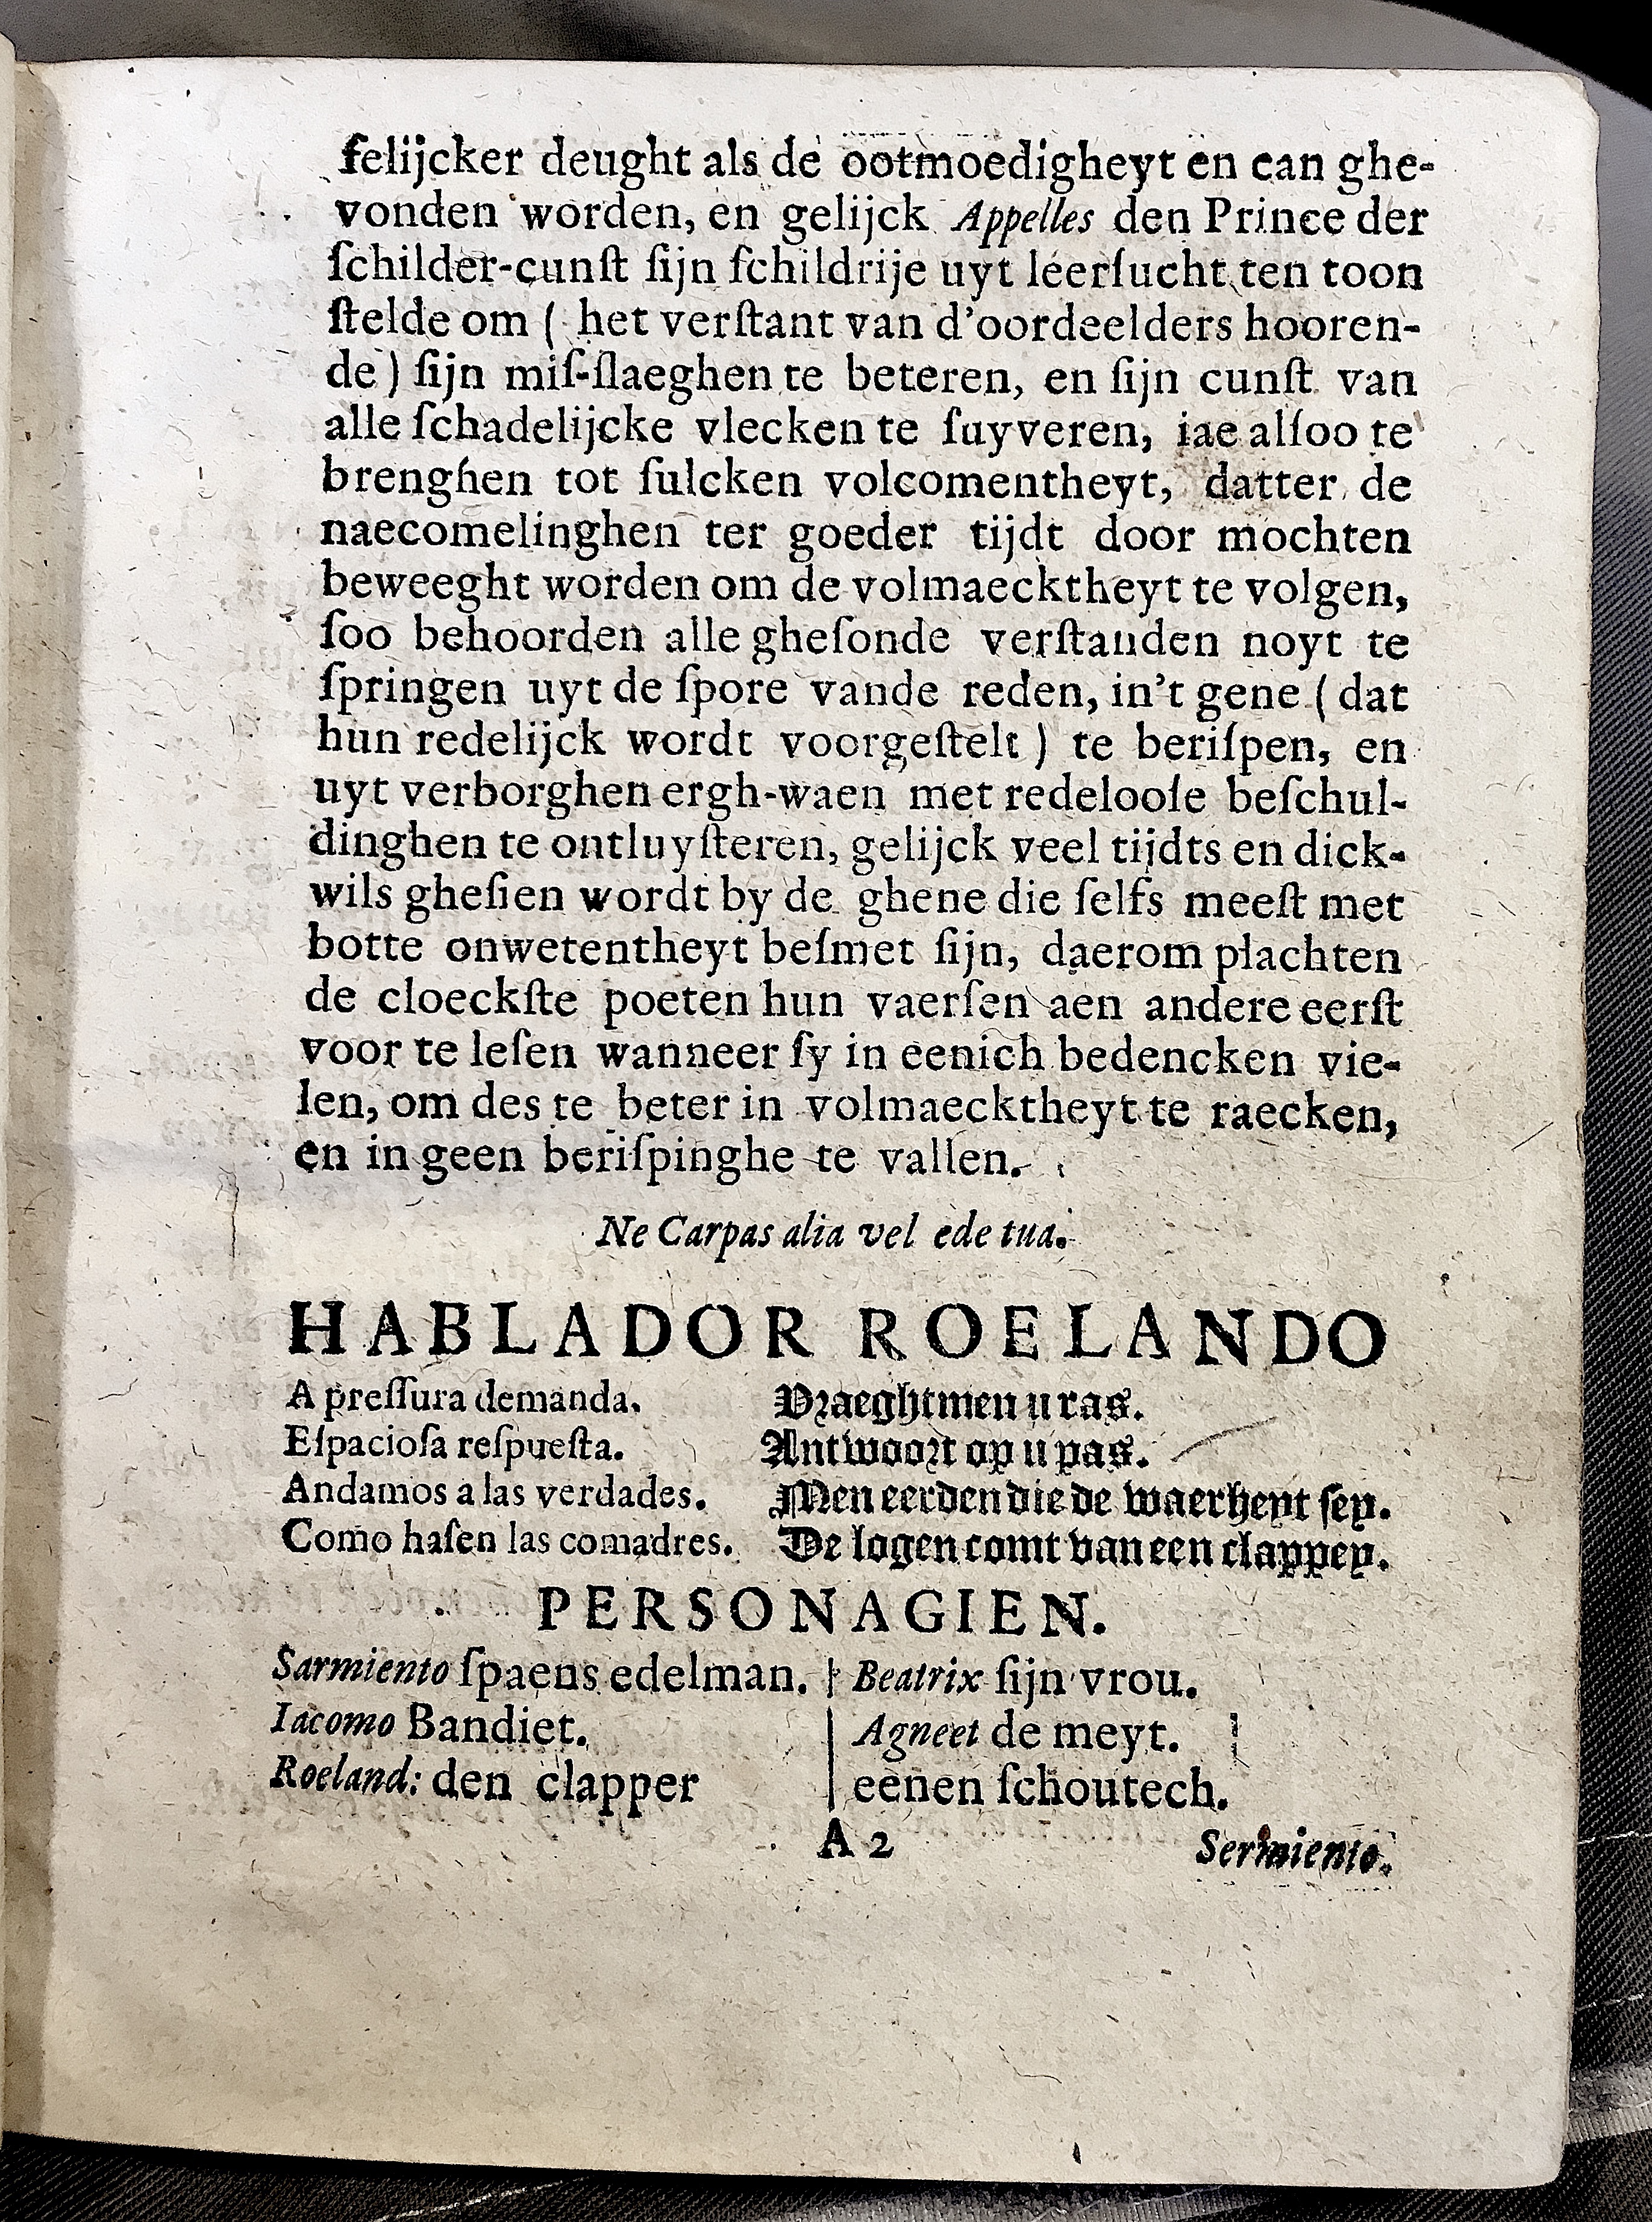 felijcker deught als de ootmoedigheyt en can ghe-
vonden worden, en gelijck Appelles den Prince der
ſchilder-cunſt ſijn ſchildrije uyt leerſucht ten toon
ſtelde om ( het verſtant van d'oordeelders hooren-
de ) ſijn miſ-ſlaeghen te beteren, en ſijn cunſt van
alle ſchadelijcke vlecken te ſuyveren, iae alſoo te
brenghen tot ſulcken volcomentheyt, datter de
naecomelinghen ter goeder tijdt door mochten
beweeght worden om de volmaecktheyt te volgen,
ſoo behoorden alle gheſonde verſtanden noyt te
ſpringen uyt de ſpore vande reden, in't gene ( dat
hun redelijck wordt voorgeſtelt ) te beriſpen, en
uyt verborghen ergh-waen met redelooſe beſchul-
dinghen te ontluyſteren, gelijck veel tijdts en dick-
wils gheſien wordt by de ghene die ſelfs meeſt met
botte onwetentheyt beſmet ſijn, daerom plachten
de cloeckſte poeten hun vaerſen aen andere eerſt
voor te leſen wanneer ſy in eenich bedencken vie-
len, om des te beter in volmaecktheyt te raecken,
en in geen beriſpinghe te vallen.
Ne Carpas alia vel ede tua.
HABLADOR ROELANDO
A preſſura demanda. Vraeghtmen u ras.
Eſpacioſa reſpueſta. Antwoort op u pas.
Andamos a las verdades. Men eerden die de waerheyt ſey.
Como haſen las comadres. De logen comt van een clappey.
PERSONAGIEN.
Sarmiento ſpaens edelman. | Beatrix ſijn vrou.
Iacomo Bandiet. | Agneet de meyt.
Roeland: den clapper | eenen ſchoutech.
A 2 Sermiento.